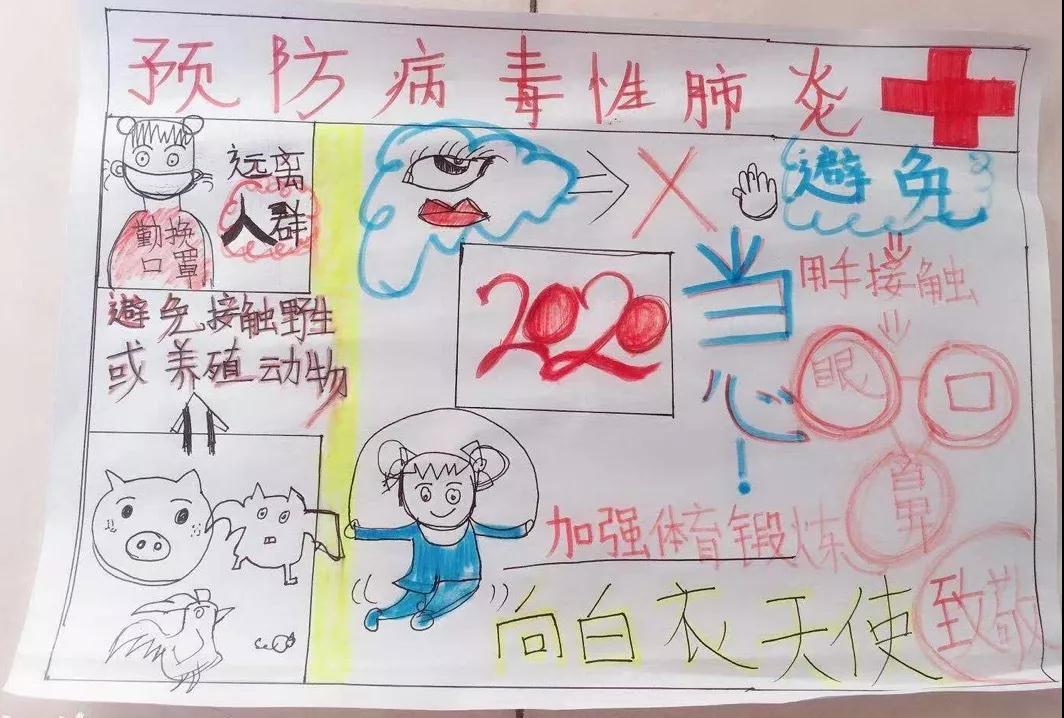 预防病毒性肺炎
远离
人群
勤换
口罩
避免接触野生
或养殖动物
X
避免
用手接触
眼
口
鼻
当心!
2020
加强体育锻炼
向白衣天使
致敬